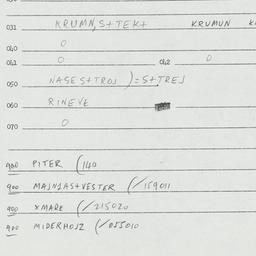 031 KRUMN, S+TEK+ KRUMUN
040 0
041 0 042 0
050 NASES+TROJ )=S+TREJ
060 RINEVE
070 0
900 PITER (140
900 MAJNJAS+VESTER (/159011
900 XMARE (/215020
900 MIDERHOJZ (/055010